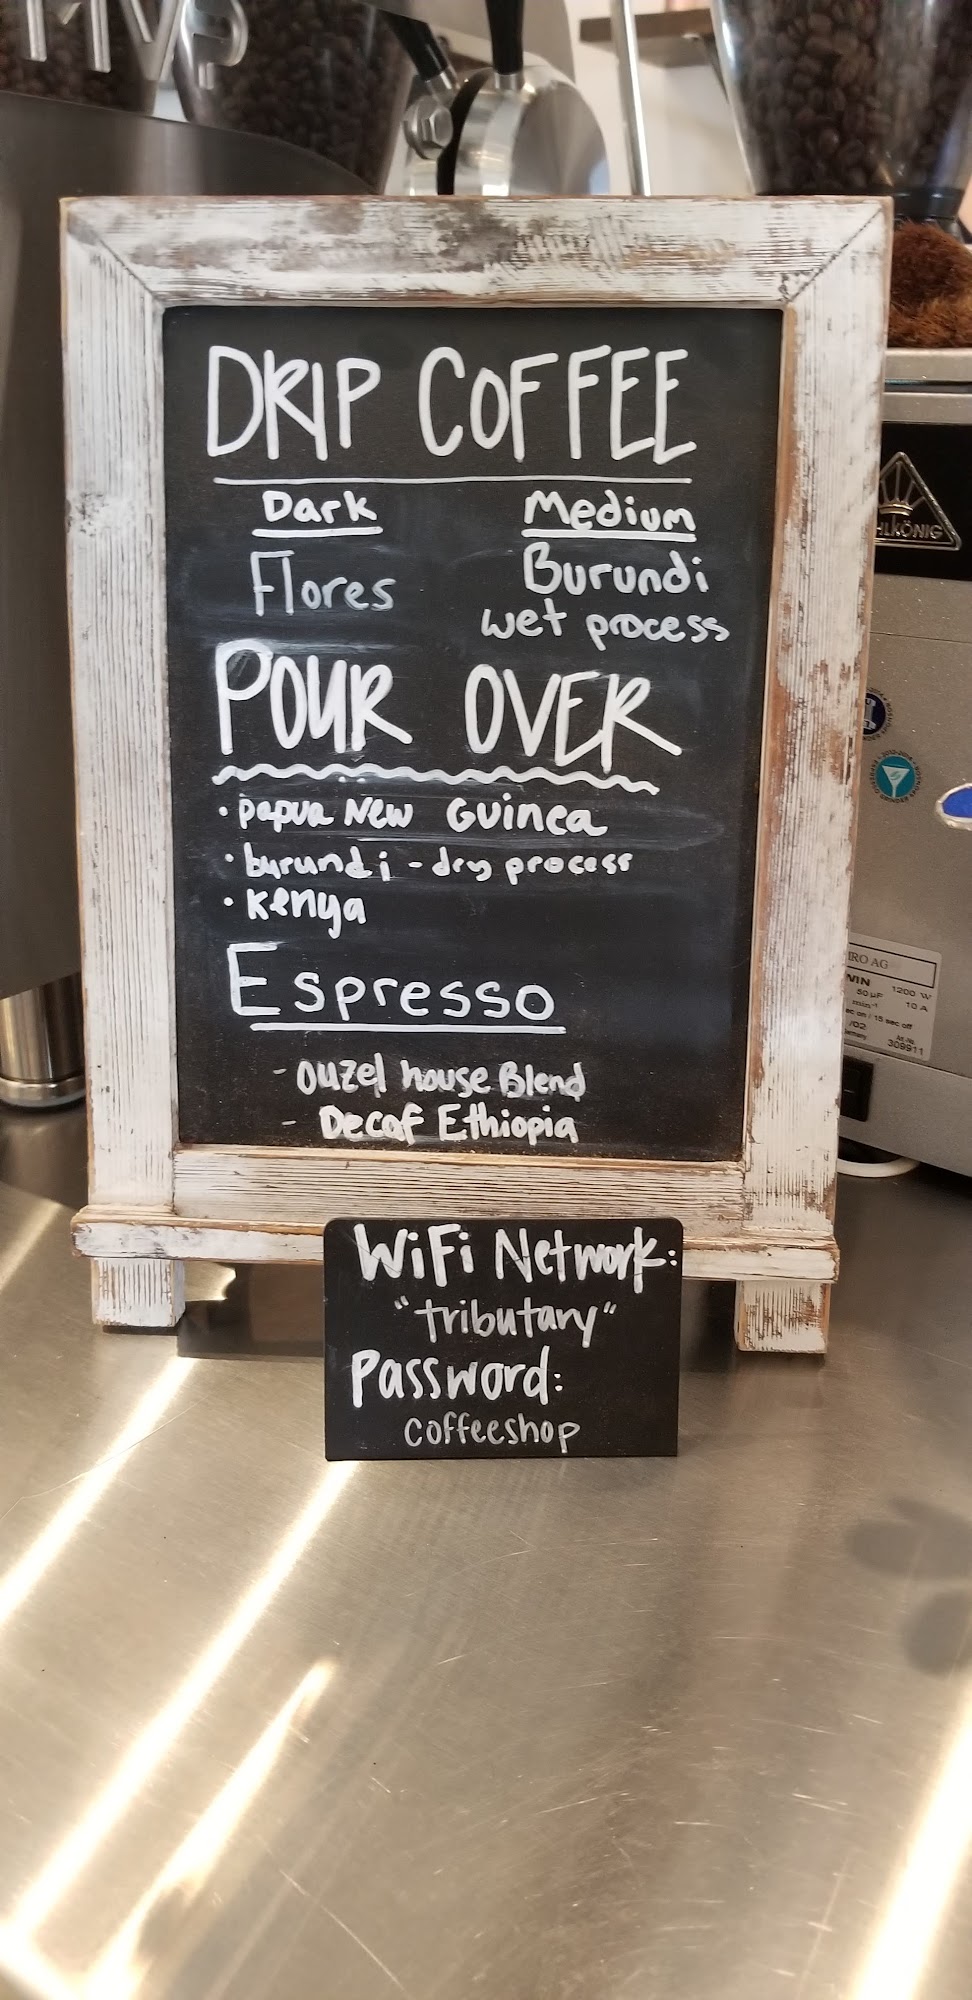 MVP
DRIP COFFEE
Dark
Medium
Flores
Burundi
wet process
POUR OVER
• papua New Guinea
• burundi - dry process
• Kenya
Espresso
- Ouzel house Blend
- Decaf Ethiopia
WiFi Network:
"tributary"
Password:
coffeeshop
HLKÖNIG
IRO AG
WIN 1200 W
50 µF 10 A
min⁻¹
ec on / 15 sec off
/02
309911